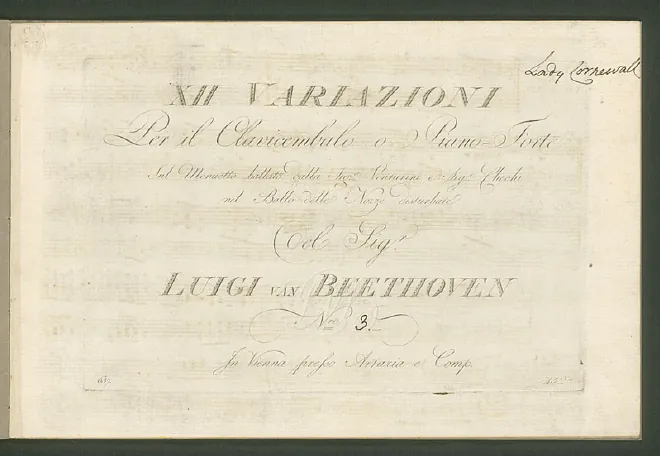 Lady Cornewall
XII VARIAZIONI
Per il Clavicembalo o Piano-Forte
Sul Menuetto ballato dalla Sig.ra Venturini e Sig.r Chechi
nel Ballo delle Nozze disturbate
Del Sig.r
LUIGI VAN BEETHOVEN
Nro 3.
In Vienna presso Artaria e Comp.